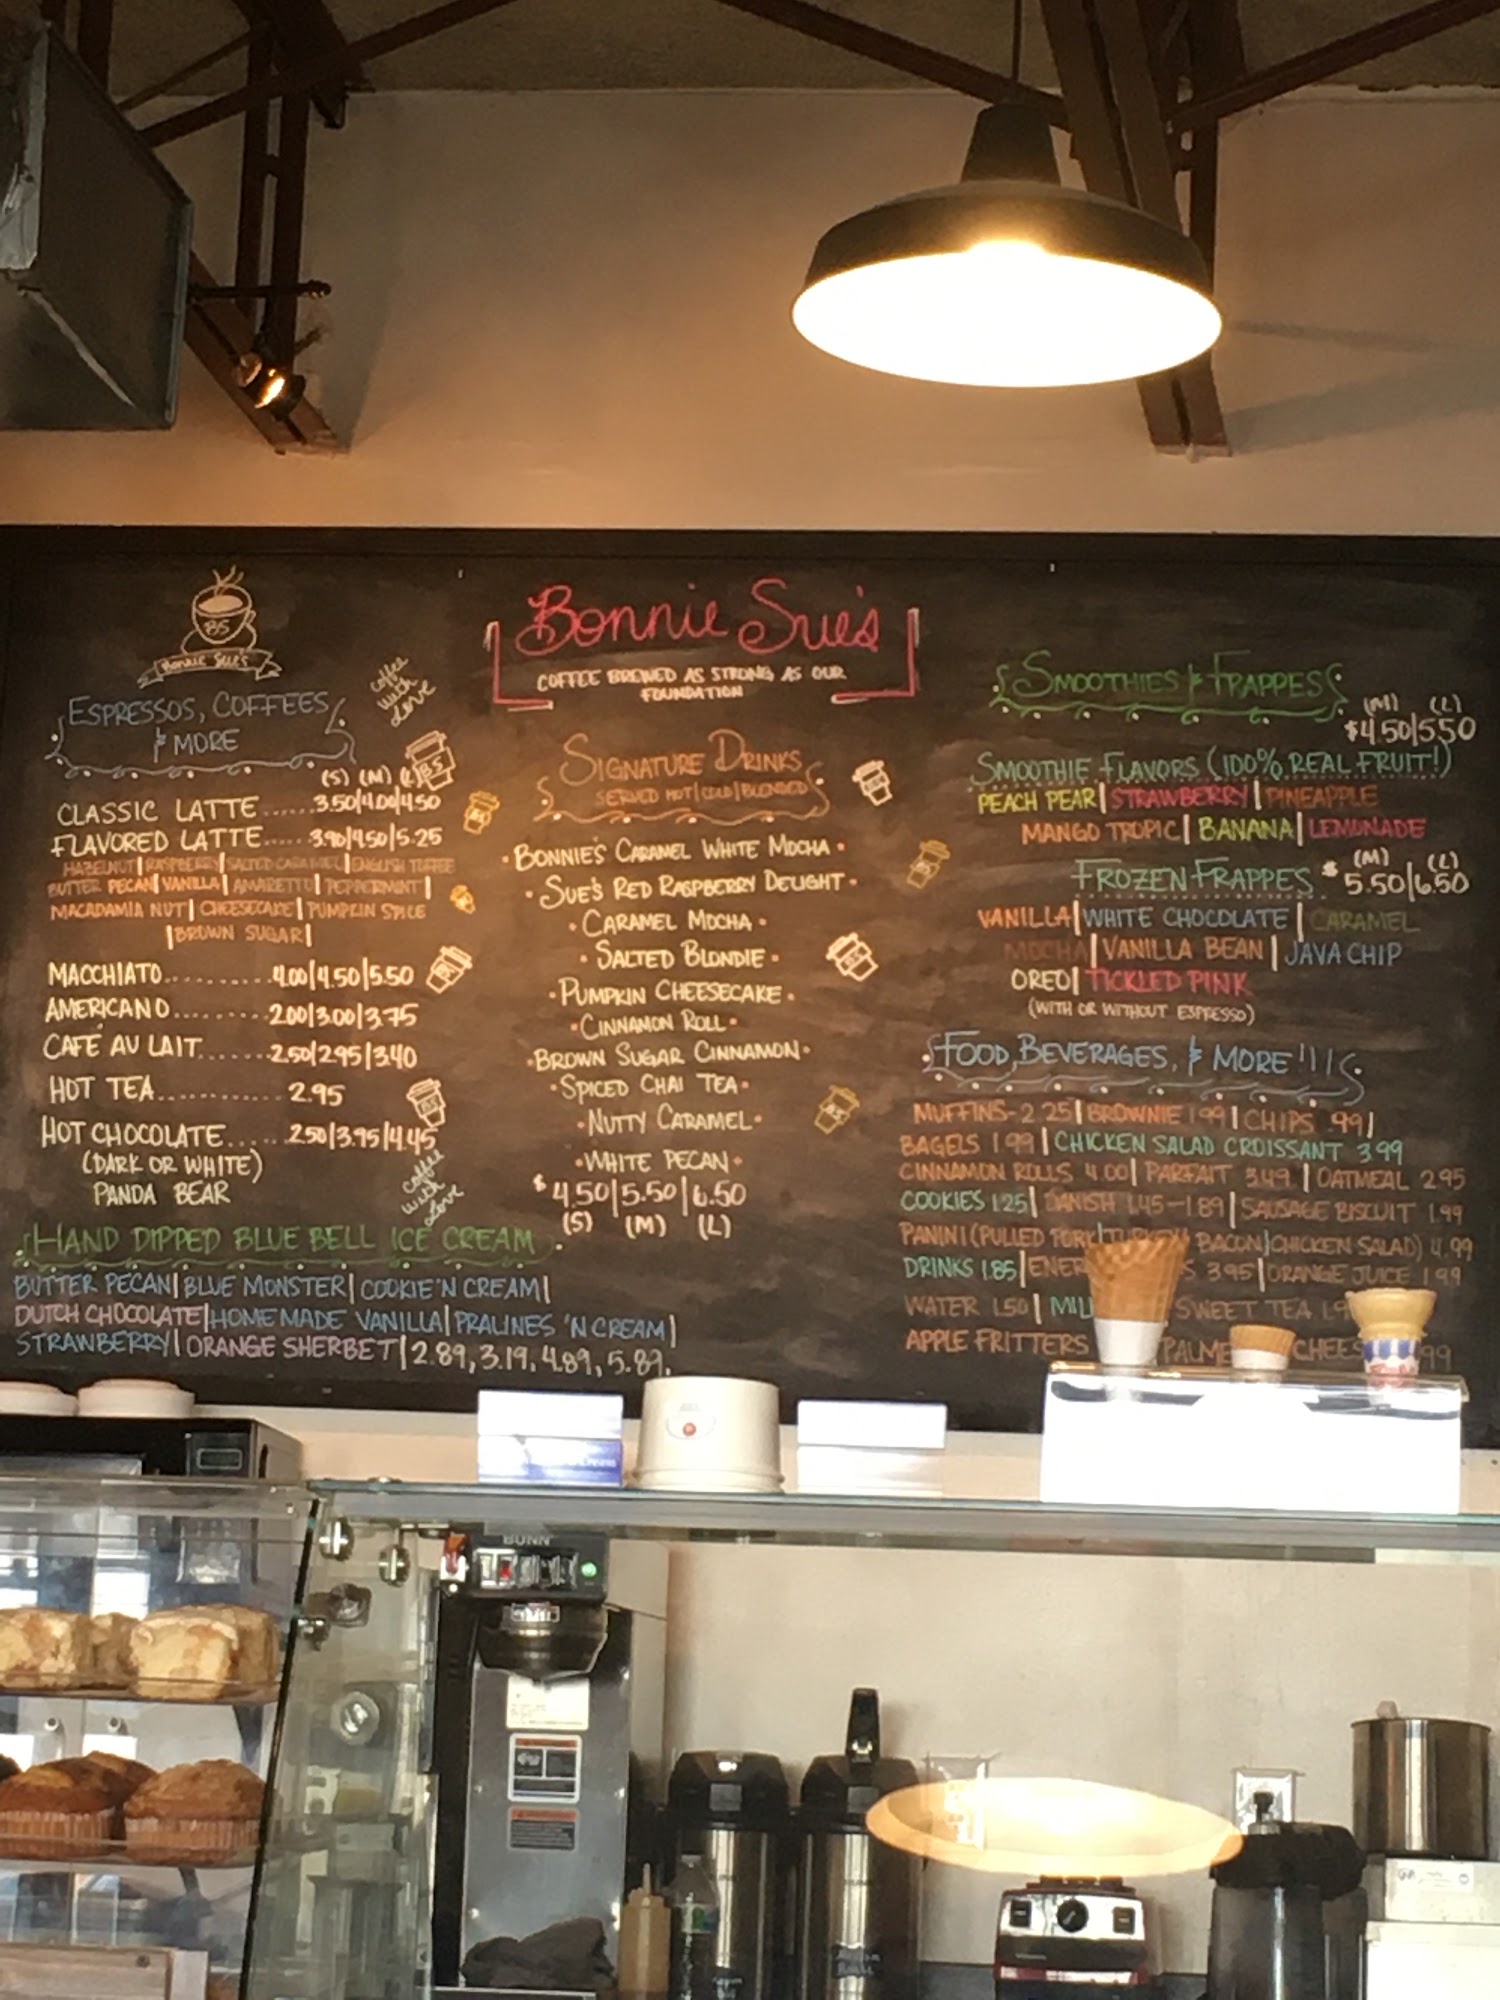 BS
Bonnie Sue's
coffee
with
Love
ESPRESSOS, COFFEES
& MORE
(S) (M) (L)
CLASSIC LATTE......3.50/4.00/4.50
FLAVORED LATTE......3.90/4.50/5.25
HAZELNUT|RASPBERRY|SALTED CARAMEL|ENGLISH TOFFEE
BUTTER PECAN|VANILLA|AMARETTO|PEPPERMINT|
MACADAMIA NUT|CHEESECAKE|PUMPKIN SPICE
|BROWN SUGAR|
MACCHIATO...........4.00|4.50|5.50
AMERICANO.........2.00|3.00|3.75
CAFÉ AU LAIT.......2.50|2.95|3.40
HOT TEA............2.95
HOT CHOCOLATE......2.50|3.95|4.45
(DARK OR WHITE)
PANDA BEAR
coffee
with
Love
HAND DIPPED BLUE BELL ICE CREAM
BUTTER PECAN|BLUE MONSTER|COOKIE'N CREAM|
DUTCH CHOCOLATE|HOMEMADE VANILLA|PRALINES 'N CREAM|
STRAWBERRY|ORANGE SHERBET|2.89, 3.19, 4.89, 5.89.
Bonnie Sue's
COFFEE BREWED AS STRONG AS OUR
FOUNDATION
SIGNATURE DRINKS
SERVED HOT|COLD|BLENDED
• BONNIE'S CARAMEL WHITE MOCHA •
• SUE'S RED RASPBERRY DELIGHT •
• CARAMEL MOCHA •
• SALTED BLONDIE •
• PUMPKIN CHEESECAKE •
• CINNAMON ROLL •
• BROWN SUGAR CINNAMON •
• SPICED CHAI TEA •
• NUTTY CARAMEL •
• WHITE PECAN •
$4.50|5.50|6.50
(S) (M) (L)
SMOOTHIES & FRAPPES
(M) (L)
$4.50/5.50
SMOOTHIE FLAVORS (100% REAL FRUIT!)
PEACH PEAR|STRAWBERRY|PINEAPPLE
MANGO TROPIC|BANANA|LEMONADE
(M) (L)
FROZEN FRAPPES $5.50/6.50
VANILLA|WHITE CHOCOLATE|CARAMEL
MOCHA|VANILLA BEAN|JAVA CHIP
OREO|TICKLED PINK
(WITH OR WITHOUT ESPRESSO)
FOOD, BEVERAGES, & MORE!!!
MUFFINS-2.25|BROWNIE 1.99|CHIPS .99|
BAGELS 1.99|CHICKEN SALAD CROISSANT 3.99
CINNAMON ROLLS 4.00|PARFAIT 3.49|OATMEAL 2.95
COOKIES 1.25|DANISH 1.45-1.89|SAUSAGE BISCUIT 1.99
PANINI (PULLED PORK|TURKEY BACON|CHICKEN SALAD) 4.99
DRINKS 1.85|ENER S 3.95|ORANGE JUICE 1.99
WATER 1.50|MIL SWEET TEA 1.9
APPLE FRITTERS PALME CHEES 99
BUNN